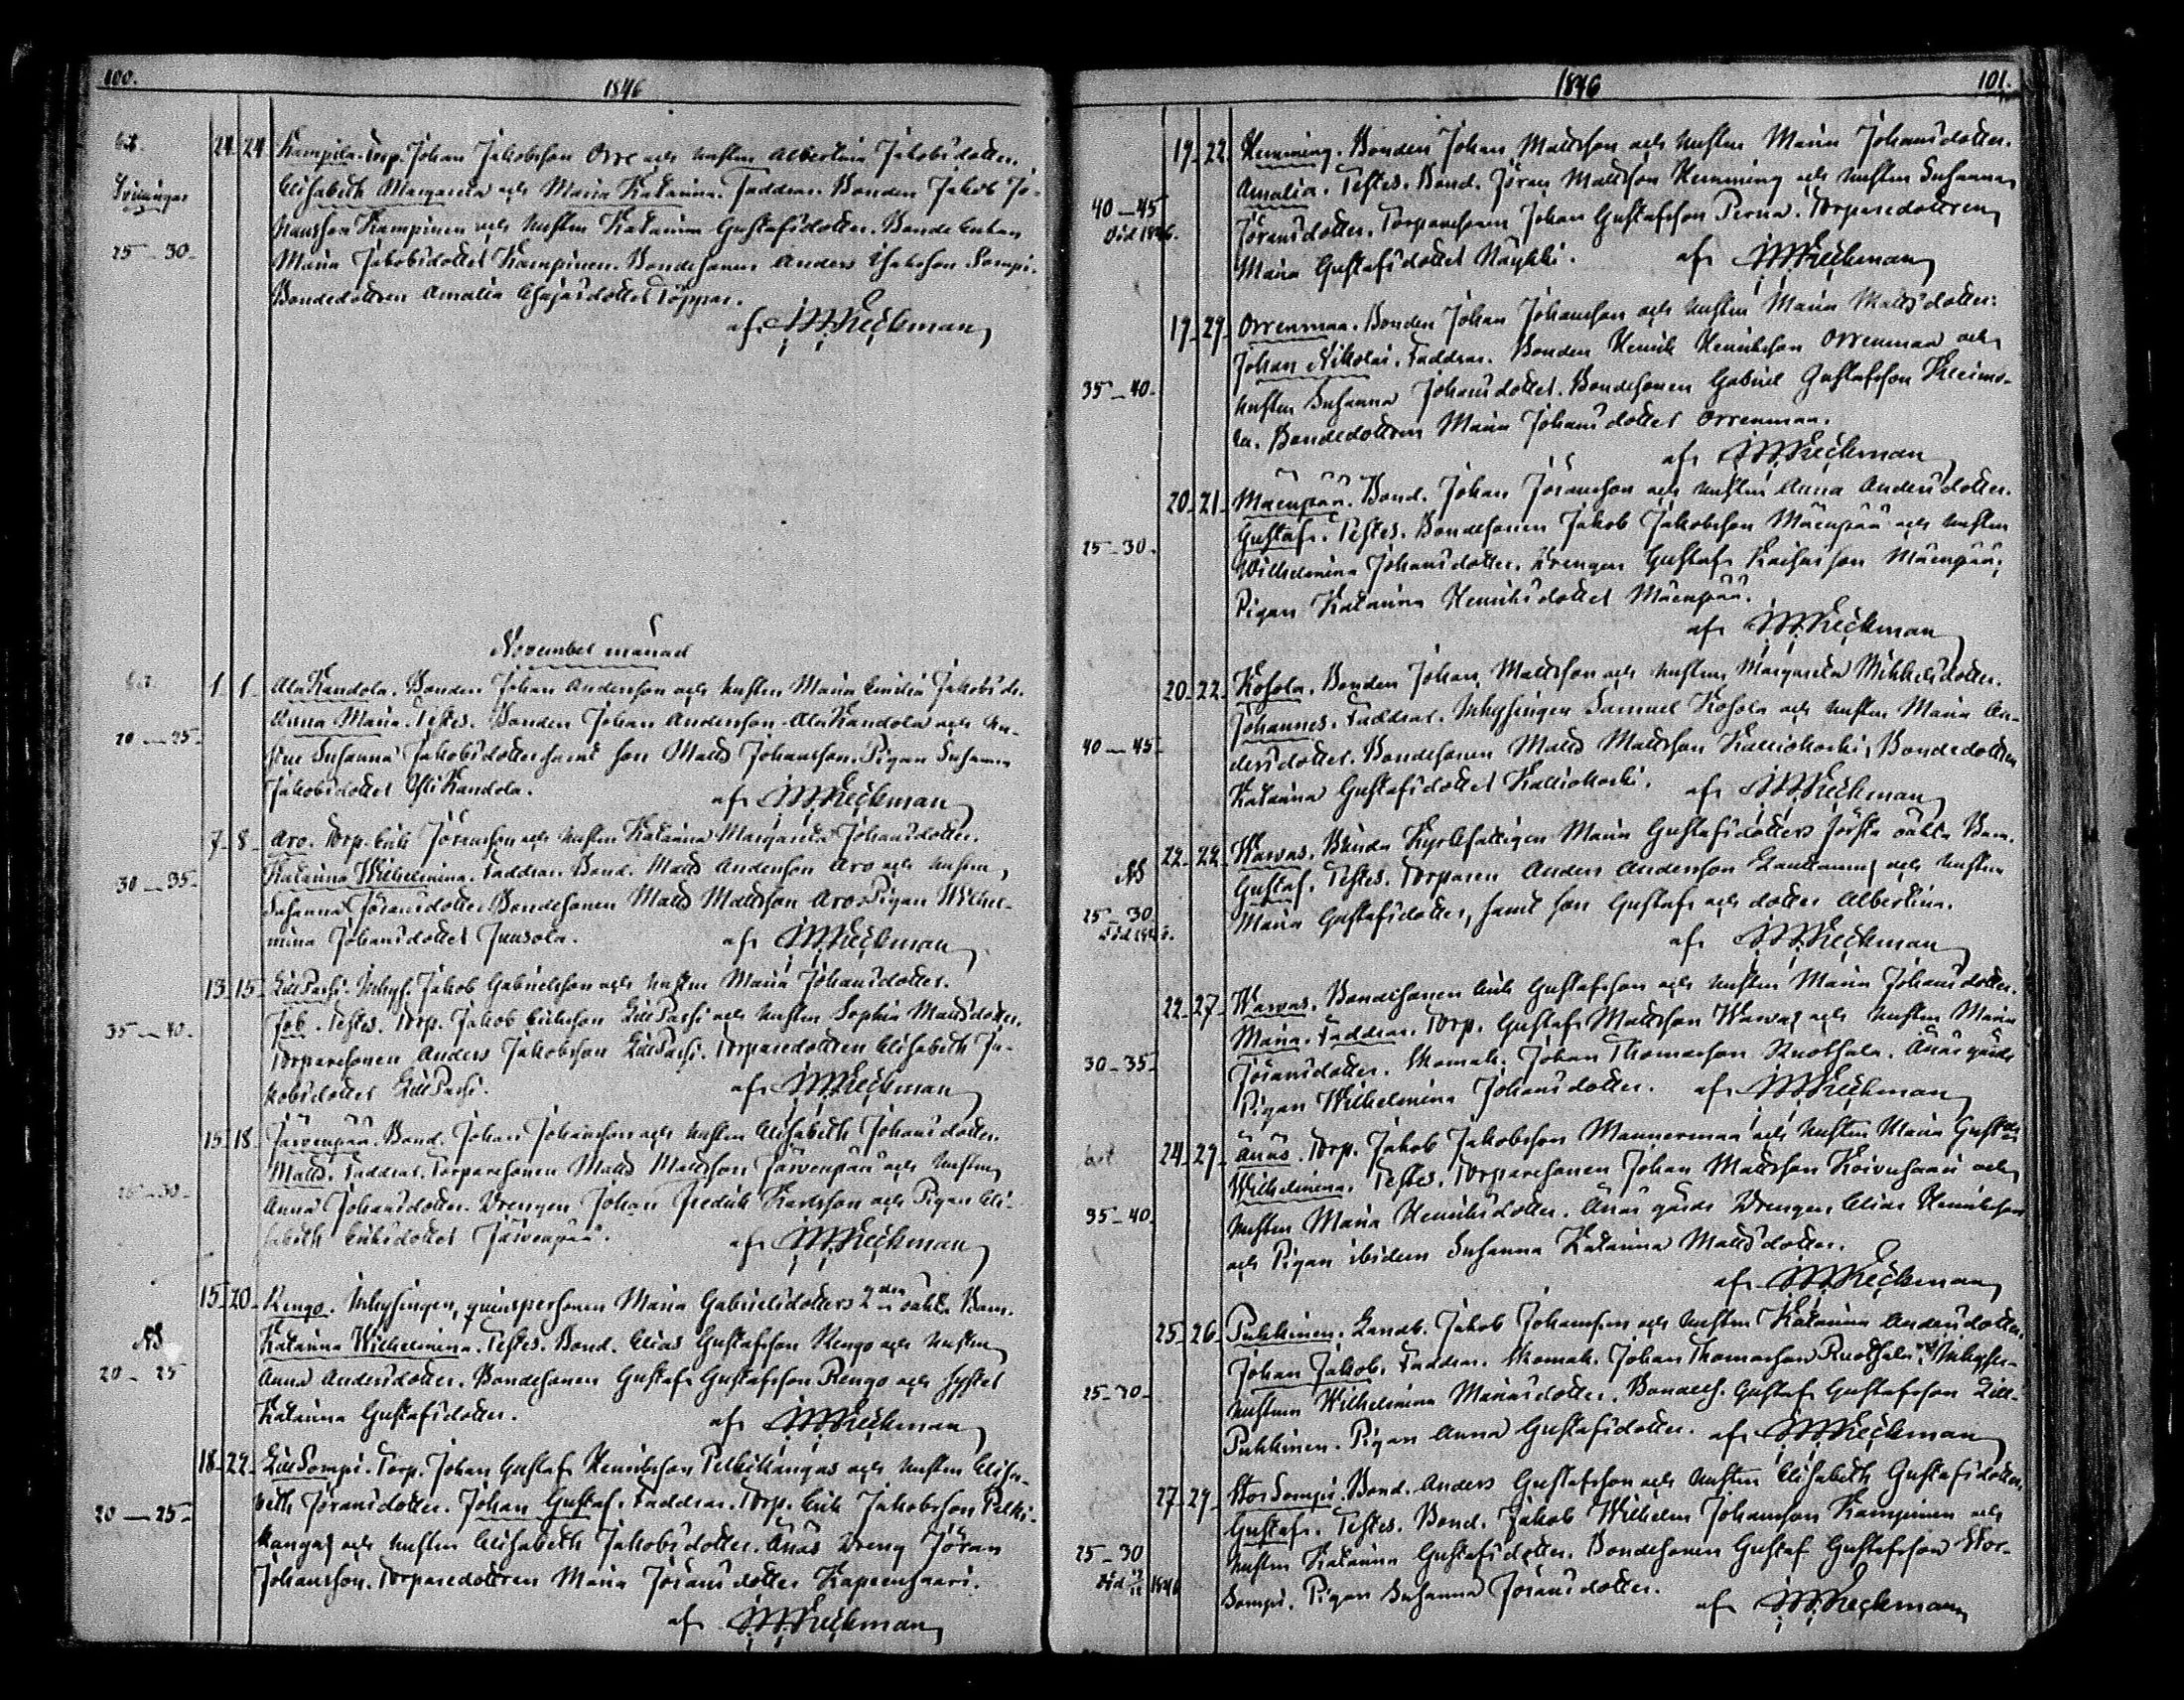 100.
1846
24 24 Kampila. Torp. Johan Jakobsson Orre och hustru Albertina Jakobsdotter.
Elisabeth Margareta och Maria Katarina. Faddrar. Bonden Jakob Jo-
Tvillingar
hansson Kampinen och hustru Katarina Gustafsdotter. Bonde
25-30.
Maria Jakobsdotter Kampinen. Bondesonen Anders Sompi.
Bondedottren Amalia Töppar.
af
November månad
1 1 AlaKandola. Bonden Johan Andersson och hustru Maria Emilia Jakobsdr.
Anna Maria. Testes. Bonden Johan Andersson AlaKandola och hu-
20-25.
stru Susanna Jakobsdotter samt son Matts Johansson. Pigan Susanna
Jakobsdotter YliKandola. af
7 8 Aro. Torp. Erik Jöransson och hustru Katarina Margareta Johansdotter.
Katarina Wilhelmina. Faddrar. Bond. Matts Andersson Aro och hustru
30-35.
Susanna Jöransdotter. Bondesonen Matts Mattsson Aro. Pigan Wilhel-
mina Johansdotter Juusola. af
13 15 LillPasi. Inhys. Jakob Gabrielsson och hustru Maria Johansdotter.
Job. Testes. Torp. Jakob Eriksson LillPasi och hustru Sophia Mattsdotter.
35-40.
Torparesonen Anders Jakobsson LillPasi. Torparedottren Elisabeth Ja-
kobsdotter LillPasi. af
15 18 Järvenpää. Bond. Johan Johansson och hustru Elisabeth Johansdotter.
Matts. Faddrar. Torparesonen Matts Mattsson Järvenpää och hustru
25-30.
Anna Johansdotter. Drengen Johan Fredrik Karlsson och Pigan Eli-
sabeth Eriksdotter Järvenpää. af
15 20 Rengo. Inhysingen, qvinspersonen Maria Gabrielsdotters 2dra oäkta Barn.
Katarina Wilhelmina. Testes. Bond. Elias Gustafsson Rengo och hustru
20-25
Anna Andersdotter. Bondesonen Gustaf Gustafsson Rengo och syster
Katarina Gustafsdotter. af
18 22 LillSompi. Torp. Johan Gustaf Henriksson Pelkikangas och hustru Elisa-
beth Jöransdotter. Johan Gustaf. Faddrar. Torp. Erik Jakobsson Pelki-
20-25.
kangas och hustru Elisabeth Jakobsdotter. Änäs Dreng Jöran
Johansson. Torparedottren Maria Jöransdotter Kapeensaari.
af
1846
101.
19 22 Hemming. Bonden Johan Mattsson och hustru Maria Johansdotter.
Amalia. Testes. Bond. Jöran Mattsson Hemming och hustru Susanna
40-45
Död 1846.
Jöransdotter. Torparesonen Johan Gustafsson Perna. Torparedottren
Maria Gustafsdotter Näykki. af
19 29 Orrenmaa. Bonden Johan Johansson och hustru Maria Mattsdotter.
Johan Nikolai. Faddrar. Bonden Henrik Henriksson Orrenmaa och
35-40.
hustru Susanna Johansdotter. Bondesonen Gabriel Gustafsson
Bondedottren Maria Johansdotter Orrenmaa.
af
20 21 Mäenpää. Bond. Johan Jöransson och hustru Anna Andersdotter.
Gustaf. Testes. Bondesonen Jakob Jakobsson Mäenpää och hustru
25-30.
Wilhelmina Johansdotter. Drengen Gustaf Mäenpää,
Pigan Katarina Henriksdotter Mäenpää.
af
20 22 Kosola. Bonden Johan Mattsson och hustru Margareta Mikkelsdotter.
Johannes. Faddrar. Inhysingen Samuel Kosola och hustru Maria An-
40-45
dersdotter. Bondesonen Matts Mattsson Kalliokoski, Bondedottren
Katarina Gustafsdotter Kalliokoski. af
22 22 Warvas. Blinda Kyrkfattigen Maria Gustafsdotters första oäkta Barn.
Gustaf. Testes. Torparen Anders Andersson och hustru
25-30
Maria Gustafsdotter, samt son Gustaf och dotter Albertina.
af
22 27 Warvas. Bondesonen Erik Gustafsson och hustru Maria Johansdotter.
Maria. Faddrar. Torp. Gustaf Mattsson Warvas och hustru Maria
30-35.
Jöransdotter. Skomak. Johan Thomasson Ruotsala. Änäs gårds
Pigan Wilhelmina Johansdotter. af
24 29 Änäs. Torp. Jakob Jakobsson Mannermaa och hustru Maria Gustafsdr
Wilhelmina. Testes. Torparesonen Johan Mattsson Koivusaari och
35-40.
hustru Maria Henriksdotter. Änäs gårds Drengen Elias Henriksson
och Pigan ibidem Susanna Katarina Mattsdotter.
af
25 26 Puhkinen. Landb. Jakob Johansson och hustru Katarina Andersdotter.
Johan Jakob. Faddrar. Skomak. Johan Thomasson Ruotsala. Inhyses-
25-30.
hustrun Wilhelmina Mariasdotter. Bondes. Gustaf Gustafsson Lill-
Puhkinen. Pigan Anna Gustafsdotter. af
27 29 StorSompi. Bond. Anders Gustafsson och hustru Elisabeth Gustafsdotter.
Gustaf. Testes. Bond. Jakob Wilhelm Johansson Kampinen och
25-30
hustru Katarina Gustafsdotter. Bondesonen Gustaf Gustafsson Stor-
Död 1846
Sompi. Pigan Susanna Jöransdotter.
af